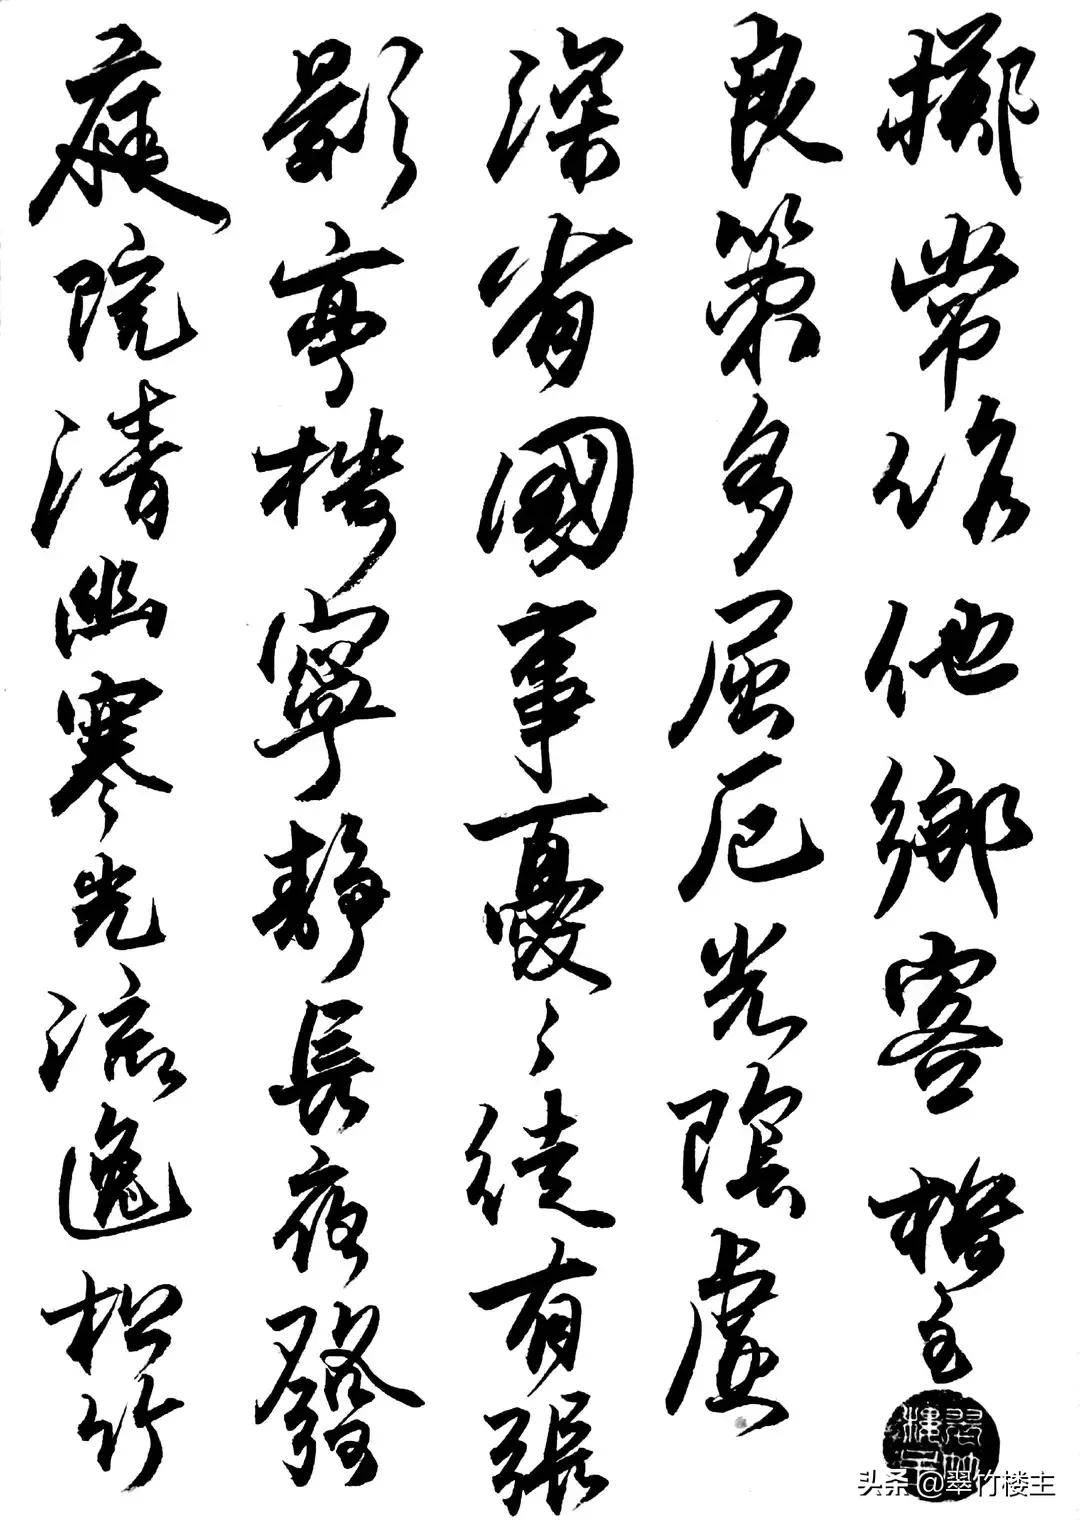 庭院清幽寒光流逸松竹
影亭樓寧靜長夜發
深省國事憂々徒有張
良策多屈厄光陰虛
擲常作他鄉客 樓主
头条@翠竹楼主